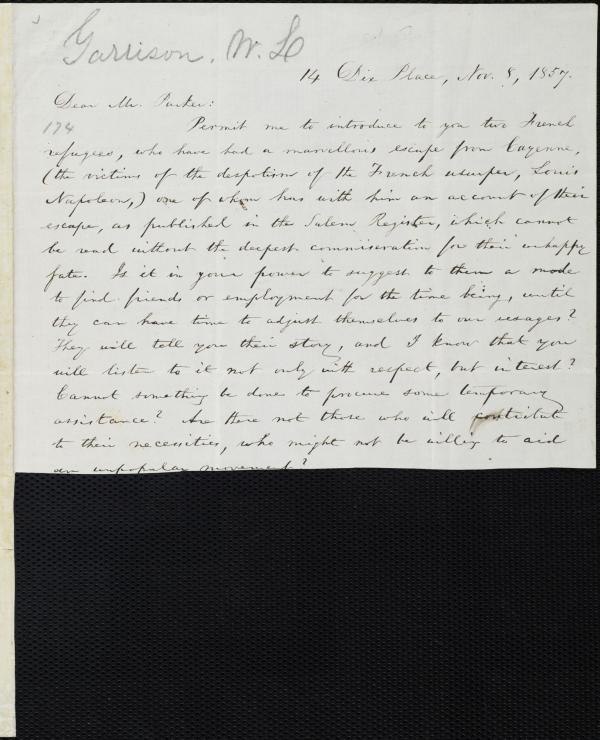 Garrison, W. L
14 Dix Place, Nov. 8, 1857.
Dear Mr. Parker:
174
Permit me to introduce to you two French
refugees, who have had a marvellous escape from Cayenne,
(the victims of the despotism of the French usurper, Louis
Napoleon,) one of whom has with him an account of their
escape, as published in the Salem Register, which cannot
be read without the deepest commiseration for their unhappy
fate. Is it in your power to suggest to them a mode
to find friends or employment for the time being, until
they can have time to adjust themselves to our usages?
They will tell you their story, and I know that you
will listen to it not only with respect, but interest?
Cannot something be done to procure some temporary
assistance? Are there not those who will contribute
to their necessities, who might not be willing to aid
an unpopular movement?